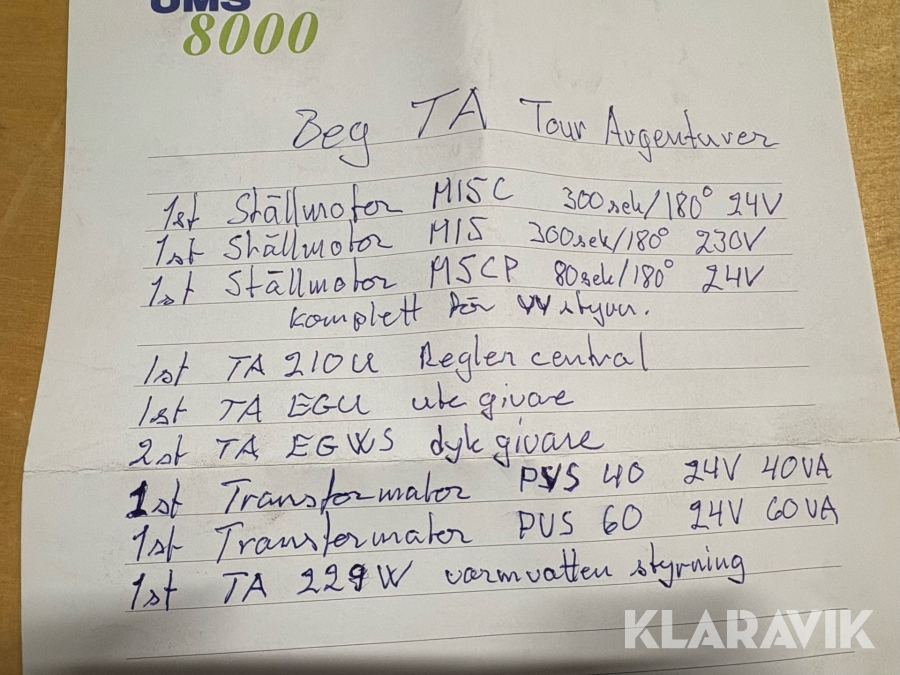 UMS
8000
Beg TA Tour Avgentuver
1st Ställmotor M15C 300sek/180° 24V
1st Ställmotor M15 300sek/180° 230V
1st Ställmotor M5CP 80sek/180° 24V
komplett för VV styrn.
1st TA 210U Reglercentral
1st TA EGU utegivare
2st TA EGWS dykgivare
1st Transformator PVS 40 24V 40VA
1st Transformator PVS 60 24V 60VA
1st TA 229W varmvatten styrning
KLARAVIK